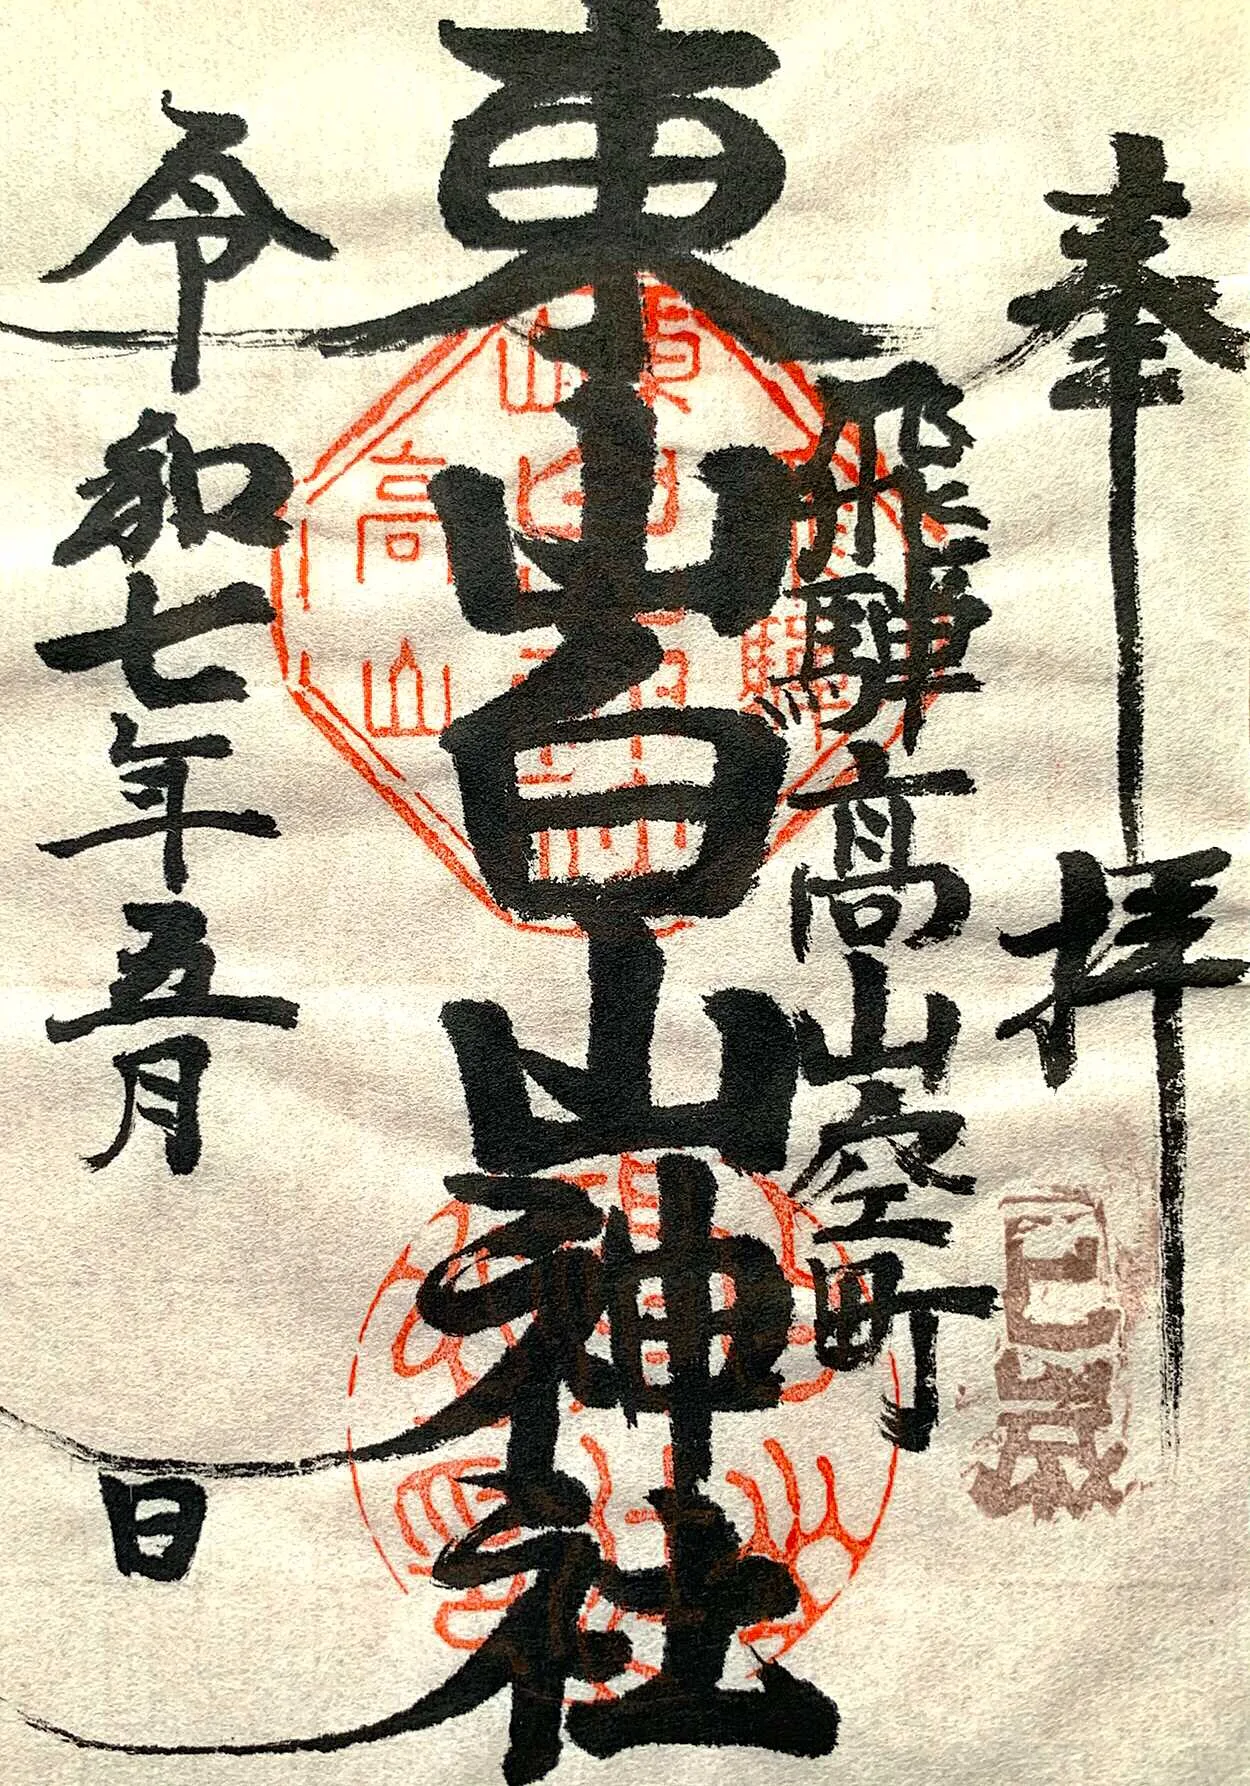 奉拝
飛騨高山空町
東山白山神社
令和七年五月 日